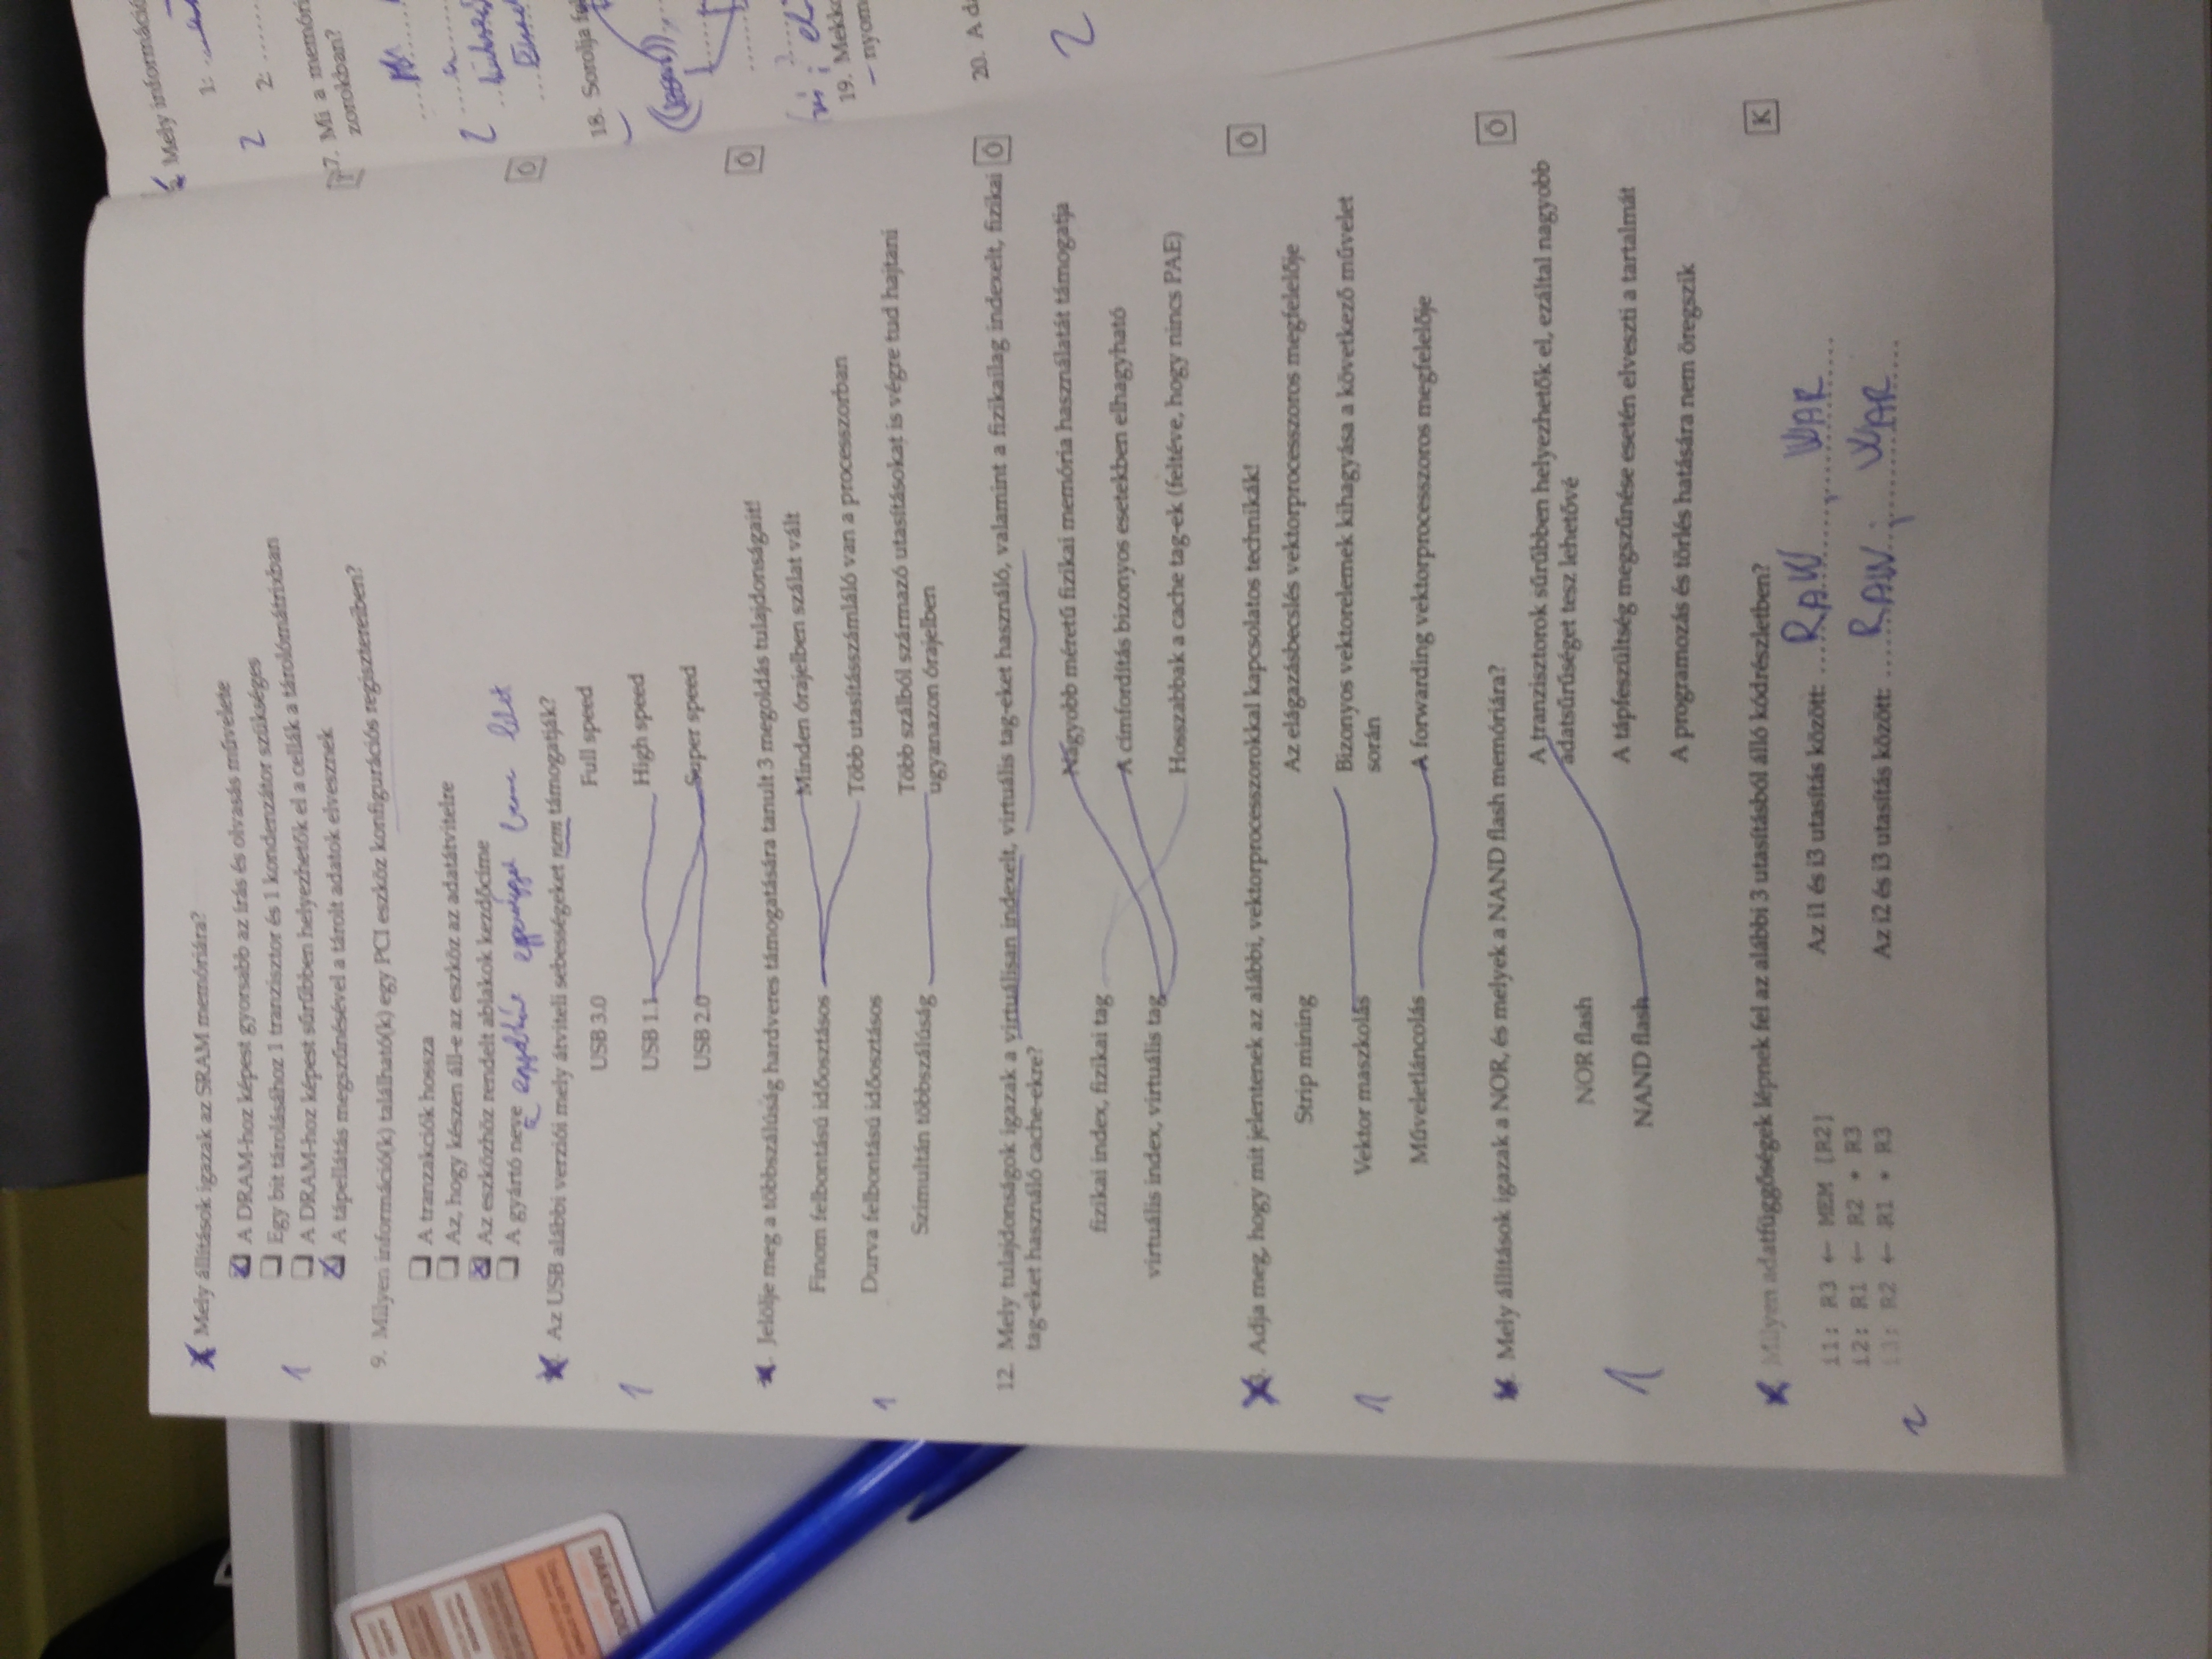 Mely állítások igazak az SRAM memóriára?
A DRAM-hoz képest gyorsabb az írás és olvasás művelete
Egy bit tárolásához 1 tranzisztor és 1 kondenzátor szükséges
1
A DRAM-hoz képest sűrűbben helyezhetők el a cellák a tárolómátrixban
A tápellátás megszűnésével a tárolt adatok elvesznek
9. Milyen információ(k) található(k) egy PCI eszköz konfigurációs regisztereiben?
A tranzakciók hossza
Az, hogy készen áll-e az eszköz az adatátvitelre
Az eszközhöz rendelt ablakok kezdőcíme
A gyártó neve
Az USB alábbi verziói mely átviteli sebességeket nem támogatják?
USB 3.0 Full speed
1
USB 1.1 High speed
USB 2.0 Super speed
Ö
Jelölje meg a többszálúság hardveres támogatására tanult 3 megoldás tulajdonságait!
Finom felbontású időosztásos Minden órajelben szálat vált
Több utasításszámláló van a processzorban
1
Durva felbontású időosztásos
Szimultán többszálúság Több szálból származó utasításokat is végre tud hajtani
ugyanazon órajelben
12. Mely tulajdonságok igazak a virtuálisan indexelt, virtuális tag-eket használó, valamint a fizikailag indexelt, fizikai Ö
tag-eket használó cache-ekre?
fizikai index, fizikai tag Nagyobb méretű fizikai memória használatát támogatja
virtuális index, virtuális tag A címfordítás bizonyos esetekben elhagyható
Hosszabbak a cache tag-ek (feltéve, hogy nincs PAE)
Adja meg, hogy mit jelentenek az alábbi, vektorprocesszorokkal kapcsolatos technikák! Ö
Strip mining Az elágazásbecslés vektorprocesszoros megfelelője
1
Vektor maszkolás Bizonyos vektorelemek kihagyása a következő művelet
során
Műveletláncolás A forwarding vektorprocesszoros megfelelője
Mely állítások igazak a NOR, és melyek a NAND flash memóriára? Ö
A tranzisztorok sűrűbben helyezhetők el, ezáltal nagyobb
adatsűrűséget tesz lehetővé
NOR flash
1
NAND flash A tápfeszültség megszűnése esetén elveszti a tartalmát
A programozás és törlés hatására nem öregszik
Milyen adatfüggőségek lépnek fel az alábbi 3 utasításból álló kódrészletben? K
i1: R3 ← MEM [R2] Az i1 és i3 utasítás között: RAW, WAR
i2: R1 ← R2 * R3
i3: R2 ← R1 * R3 Az i2 és i3 utasítás között: RAW; WAR
2
Mely információ
1:
2
2:
7. Mi a memóri
zorokban?
2
Ö
18. Sorolja fel
19. Mekko
nyom
20. A da
2